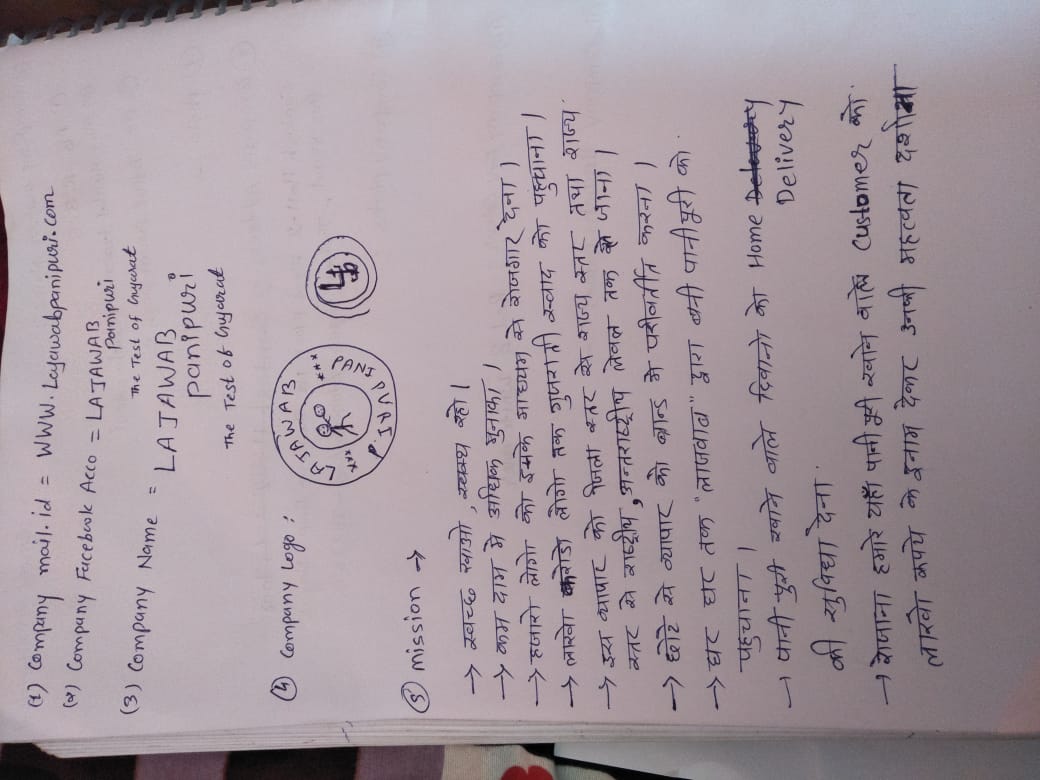 (1) Company mail.id = WWW.Lajawabpanipuri.com
(2) Company Facebook Acco = LAJAWAB
Panipuri
The Test of Gujarat
(3) Company Name =
LAJAWAB
panipuri
The Test of Gujarat
(4) Company Logo :
LAJAWAB
PANI PURI
(5) mission →
→ स्वच्छ खाओ, स्वस्थ रहो।
→ कम दाम मे अधिक मुनाफा।
→ हजारो लोगो को इसके माध्यम से रोजगार देना।
→ लाखो करोडो लोगो तक गुजराती स्वाद को पहुचाना।
→ इस व्यापार को जिला स्तर से राज्य स्तर तथा राज्य
स्तर से राष्ट्रीय, अन्तराष्ट्रीय लेवल तक ले जाना।
→ छोटे से व्यापार को ब्रान्ड मे परीवर्तीत करना।
→ घर घर तक "लाजवाब" द्वारा बनी पानीपूरी को
पहुचाना।
→ पानी पुरी खाने वाले दिवानो को Home
Delivery
की सुविधा देना.
→ रोजाना हमारे यहाँ पानी पुरी खाने वाले Customer को
लाखो रूपये के इनाम देकर उनकी महत्वता दर्शाना